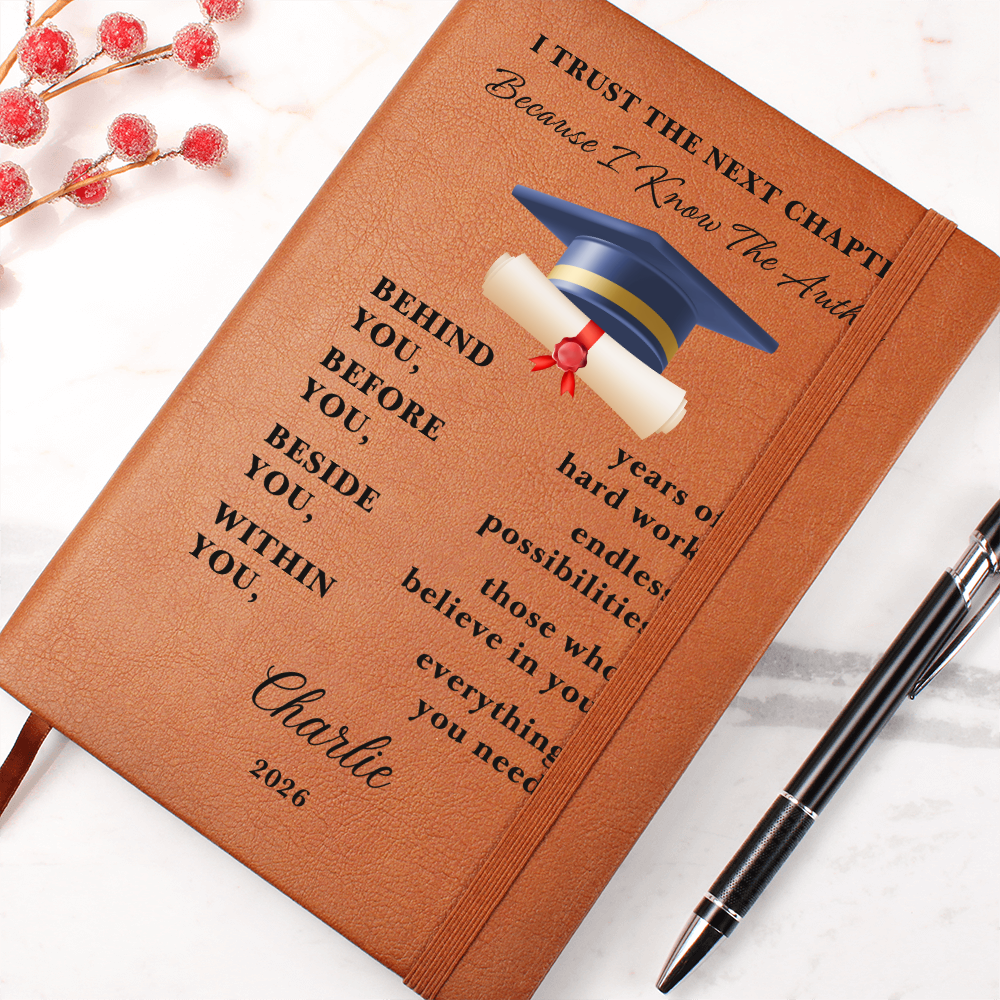 I TRUST THE NEXT CHAPT
Because I Know The Auth
BEHIND
YOU,
years of
hard work
BEFORE
YOU,
endless
possibilities
BESIDE
YOU,
those who
believe in you
WITHIN
YOU,
everything
you need
Charlie
2026